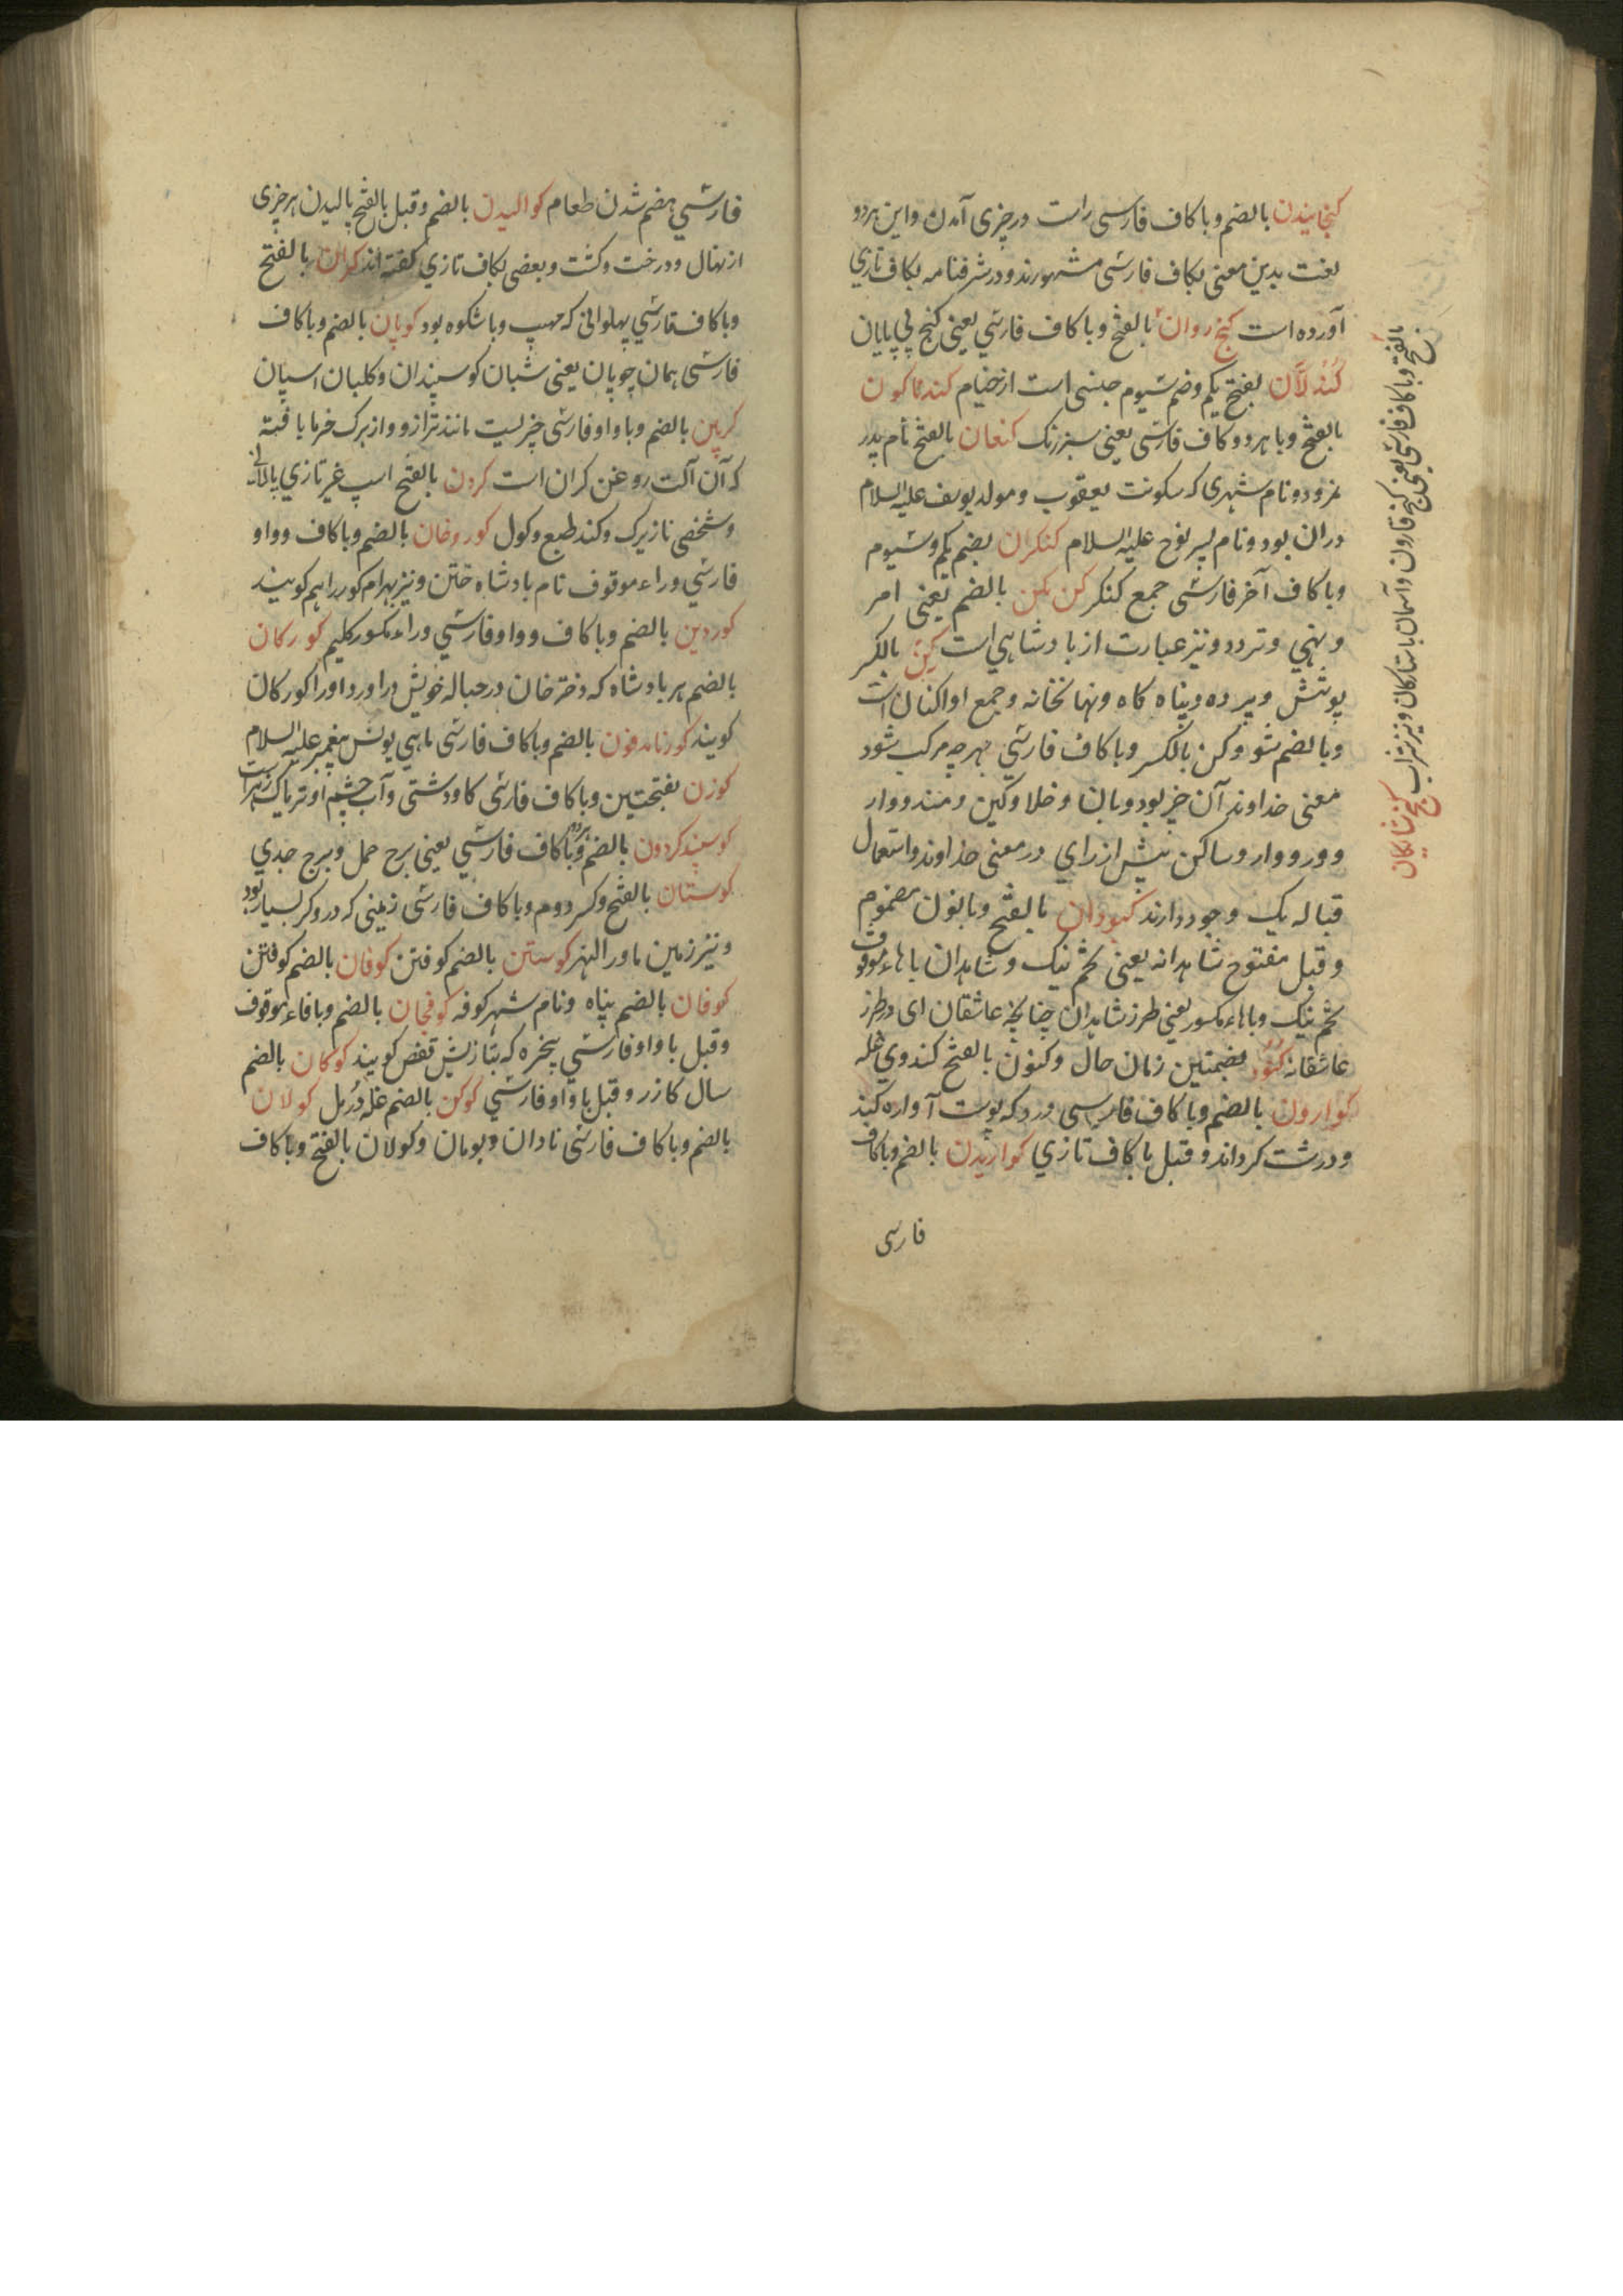 کنجانیدن بالضم وبا کاف فارسی راست در چزی آمدن واین هردو
لغت بدین معنی بکاف فارسی مشهورند ودر شرفنامه بکاف تازی
آورده است کنج روان بالفتح وبا کاف فارسی یعنی کنج بی پایان
کندلان بفتح یکم وضم سیوم جنسی است از خیام کندناکون
بالفتح وبا هر دو کاف فارسی یعنی سبز رنک کنعان بالفتح نام پدر
نمرود ونام شهری که سکونت یعقوب ومولد یوسف علیه السلام
دران بود ونام پسر نوح علیه السلام کنکران بضم یکم وسیوم
وبا کاف آخر فارسی جمع کنکر کن مکن بالضم یعنی امر
ونهی وتردد ونیز عبارت از بادشاهی است کن بالکسر
پوشش وپرده وپناه کاه ونهانخانه وجمع او اکنان است
وبالضم شو وکن بالکسر وبا کاف فارسی بهرچه مرکب شود
معنی خداوند آن خبر بود وبان وخلا وکین ومند ووار
وور ووار وساکن پیش از رای در معنی خداوند واستعمال
قباله یک وجود دارند کنبودان بالفتح وبا نون مضموم
وقبل مفتوح شاهدانه یعنی تخم بنک وشاهدان با هاء موقوف
تخم بنک وبا هاء مکسور یعنی طرز شاهدان چنانچه عاشقان ای در طرز
عاشقانه کنون بضمتین زمان حال وکنون بالفتح کندوی غله
کوارون بالضم وبا کاف فارسی درد که پوست آواره کند
ودرشت کرداند وقبل با کاف تازی کواریدن بالضم وبا کاف
فارسی
کنج شایکان
بالفتح وبا کاف فارسی یعنی کنج قارون وآسمان با ستارکان ونیز شراب
فارسی هضم شدن طعام کوالیدن بالضم وقبل بالفتح بالیدن هر چزی
از نهال ودرخت وکشت وبعضی بکاف تازی کفته اند کوان بالفتح
وبا کاف فارسی پهلوانی که مهیب وبا شکوه بود کوپان بالضم وبا کاف
فارسی همان چوپان یعنی شبان کوسپندان وکلبان اسپان
کوپین بالضم وبا واو فارسی چزیست مانند ترازو واز برک خرما بافته
که آن آلت روغن کران است کودن بالفتح اسپ غیر تازی پالانی
وشخصی نازیرک وکند طبع وکول کورو خان بالضم وبا کاف وواو
فارسی وراء موقوف نام بادشاه ختن ونیز بهرام کور را هم کویند
کوردین بالضم وبا کاف وواو فارسی وراء مکسور کلیم کورکان
بالضم هر بادشاه که دختر خان در حباله خویش دراورد اورا کورکان
کویند کور نامدفون بالضم وبا کاف فارسی ماهی یونس پیغمبر علیه السلام
کوزن بفتحتین وبا کاف فارسی کاو دشتی وآب چشم او تریاک زهر است
کوسپند کردون بالضم وبا کاف فارسی یعنی برج حمل وبرج جدی
کوستان بالفتح وکسر دوم وبا کاف فارسی زمینی که درو کر بسیار بود
ونیز زمین ماورالنهر کوستن بالضم کوفتن کوفان بالضم کوفتن
کوفان بالضم پناه ونام شهر کوفه کوفجان بالضم وبا فاء موقوف
وقبل با واو فارسی پنجره که بتازیش قفص کویند کوکان بالضم
سال کازر وقبل با واو فارسی کوکن بالضم غله دُرمل کولان
بالضم وبا کاف فارسی نادان وبومان وکولان بالفتح وبا کاف